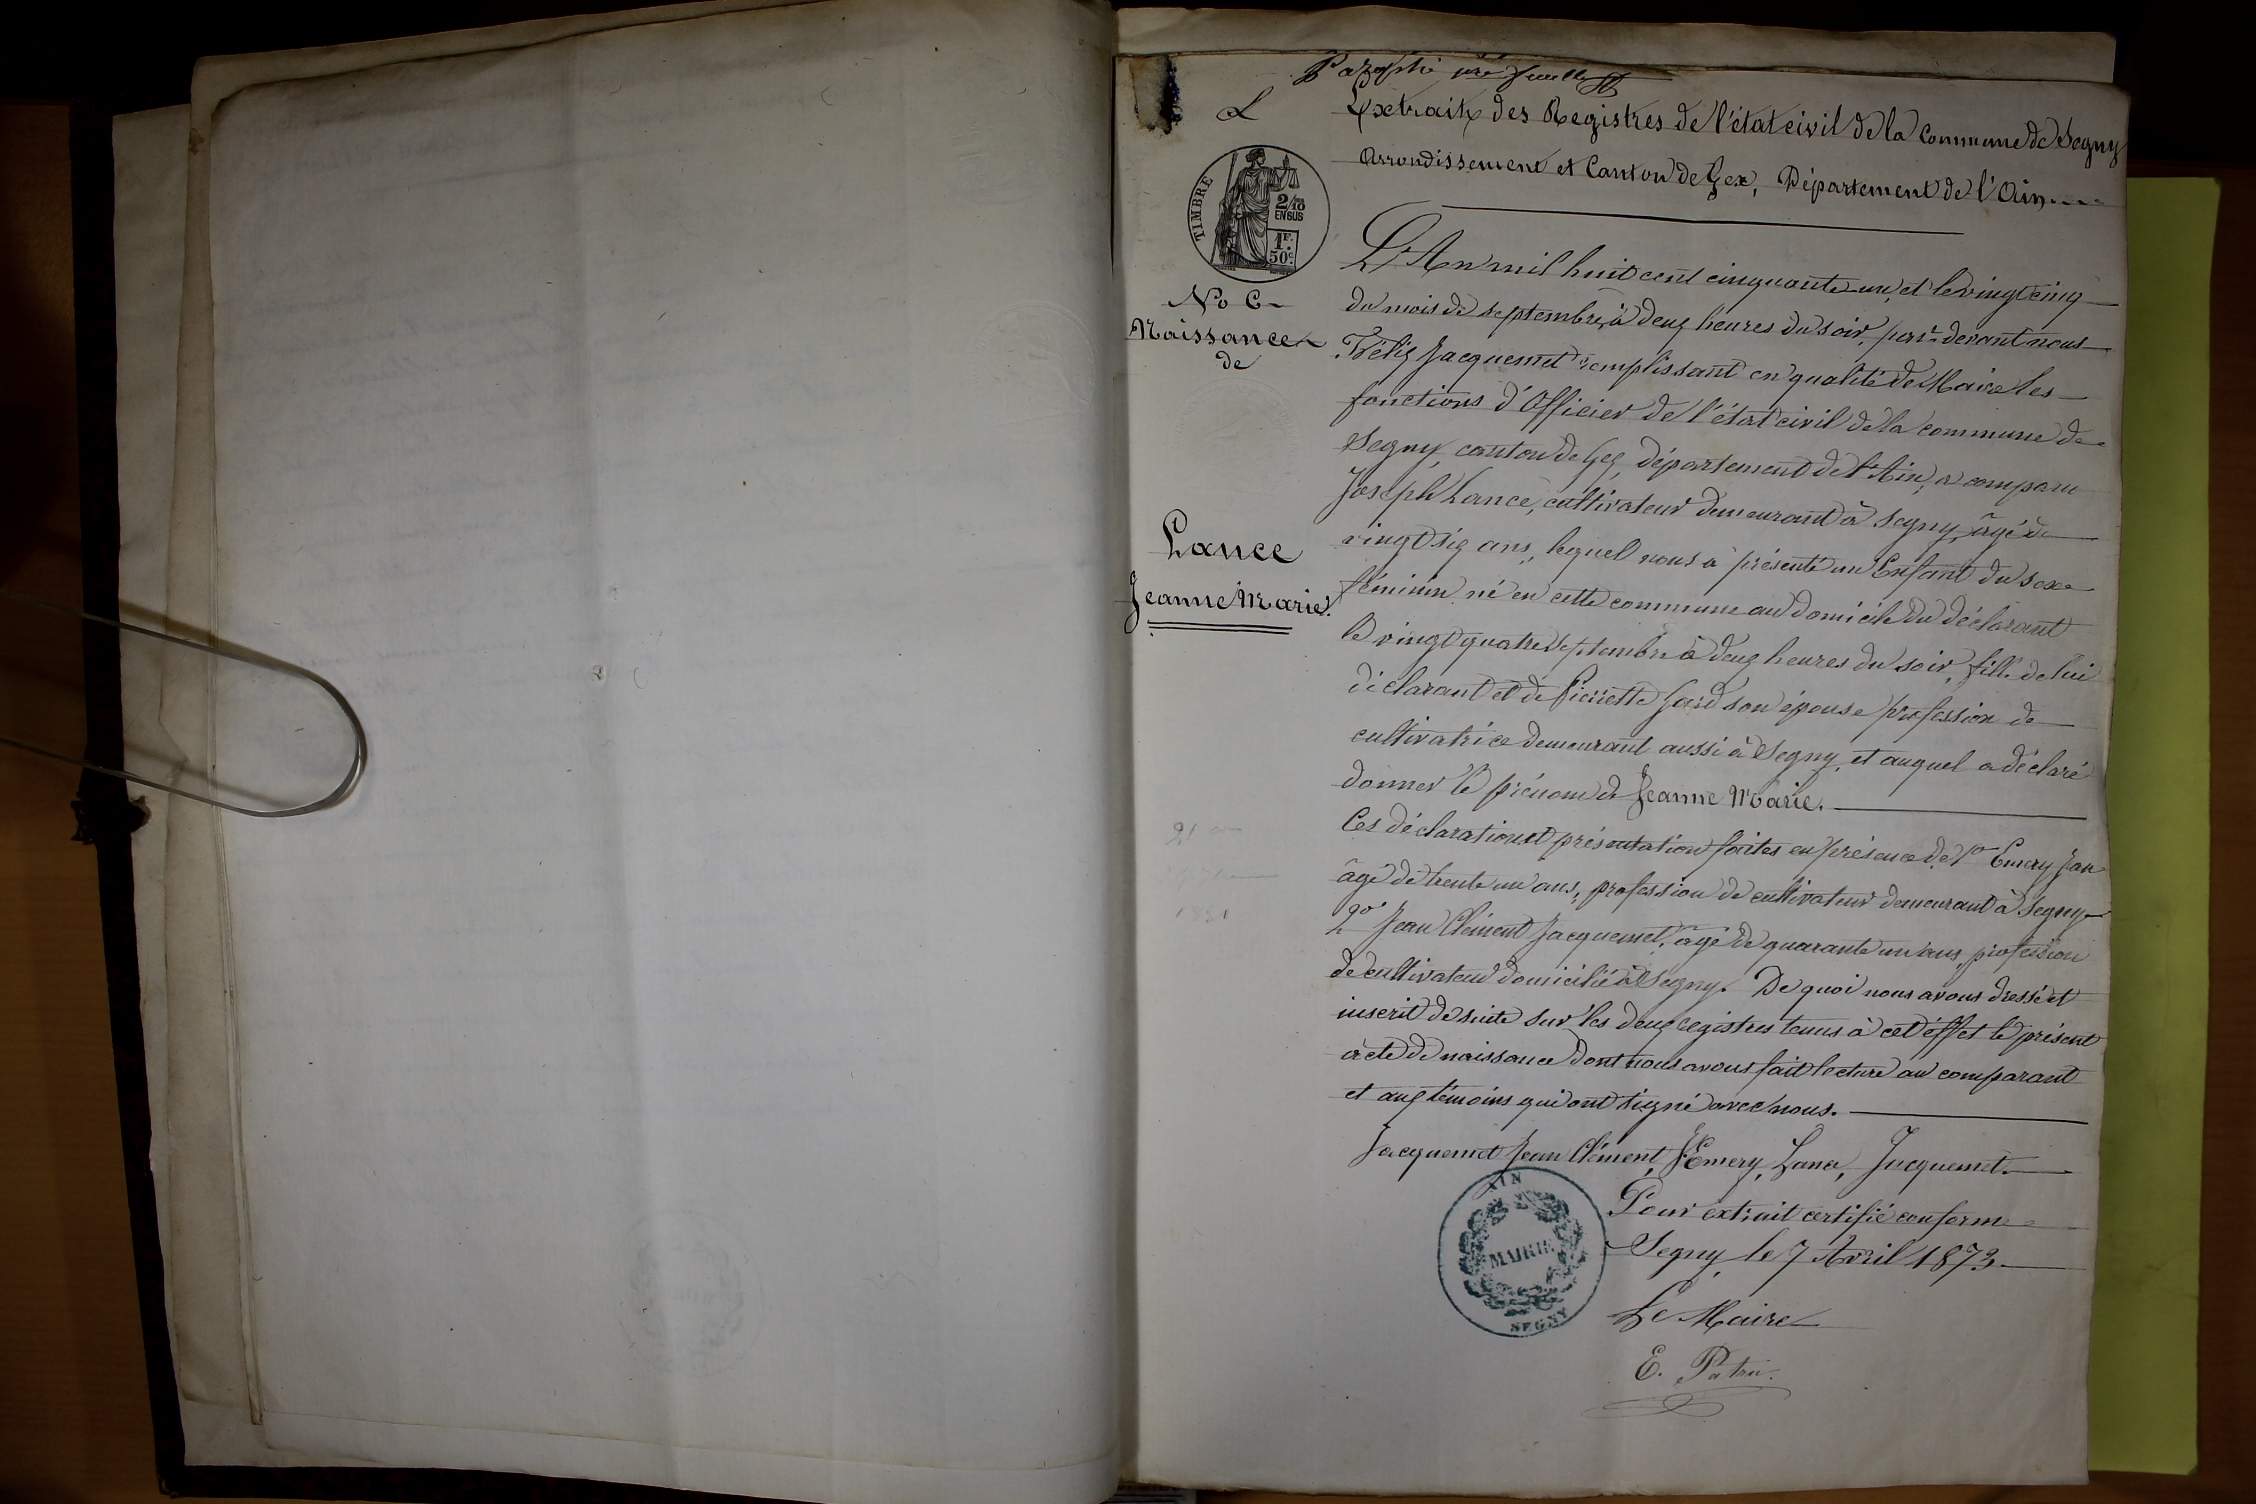 Paraphé
L
Extrait des Registres de l'état civil de la Commune de Segny
Arrondissement et Canton de Gex, Département de l'Ain
TIMBRE
2/10
EN SUS
1F.
50c.
No 6
Naissance
de
Lance
Jeanne Marie.
L'An mil huit cent cinquante un, et le vingt cinq
du mois de septembre, à deux heures du soir, par devant nous
Félix Jacquemet remplissant en qualité de Maire les
fonctions d'Officier de l'état civil de la commune de
Segny, canton de Gex, département de l'Ain, a comparu
Joseph Lance, cultivateur demeurant à Segny, âgé de
vingt six ans, lequel nous a présenté un Enfant du sexe
féminin né en cette commune au domicile du déclarant
le vingt quatre septembre à deux heures du soir, fille de lui
déclarant et de Pierrette son épouse profession de
cultivatrice demeurant aussi à Segny, et auquel a déclaré
donner le prénom de Jeanne Marie.
Ces déclaration et présentation faites en présence de 1o Emery Jean
âgé de trente un ans, profession de cultivateur demeurant à Segny
2o Jean Clément Jacquemet, âgé de quarante un ans, profession
de cultivateur domicilié à Segny. De quoi nous avons dressé et
inscrit de suite sur les deux registres tenus à cet éffet le présent
acte de naissance dont nous avons fait lecture au comparant
et aux témoins qui ont signé avec nous.
Jacquemet Jean Clément, J. Emery, Lance, Jacquemet.
Pour extrait certifié conforme
Segny, le 7 Avril 1873
Le Maire
E. Patru.
AIN
MAIRIE
SEGNY